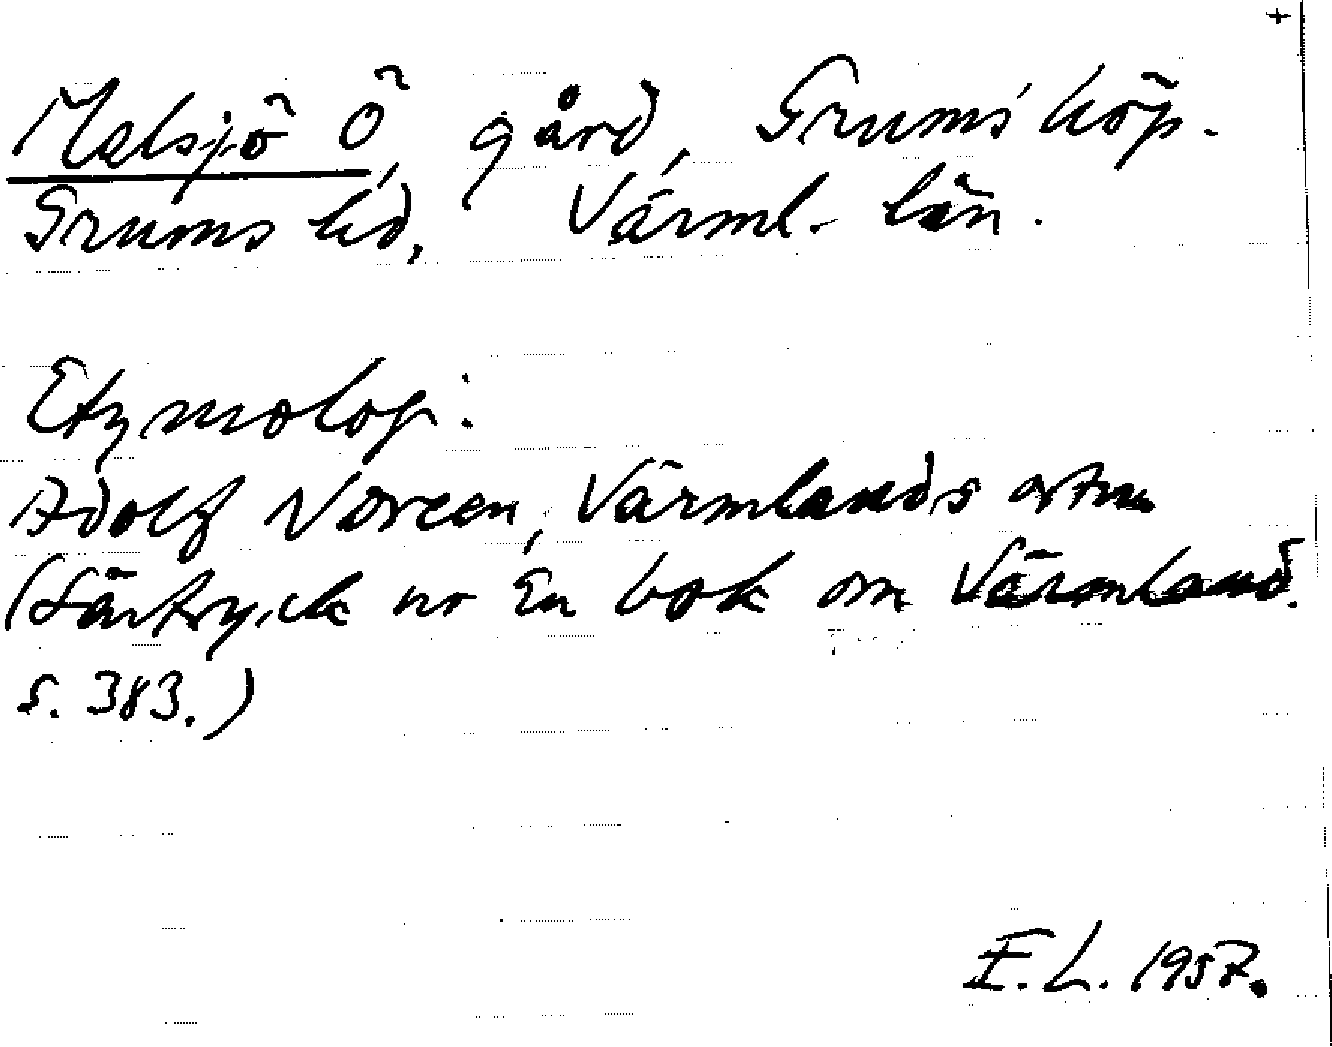 +
Malsjö Ö, gård, Grums köp.
Grums hd, Värml. län.
Etymolog:
Adolf Noreen, Värmlands ortnn
(Särtryck ur En bok om Värmland.
s. 383.)
E.L. 1957.